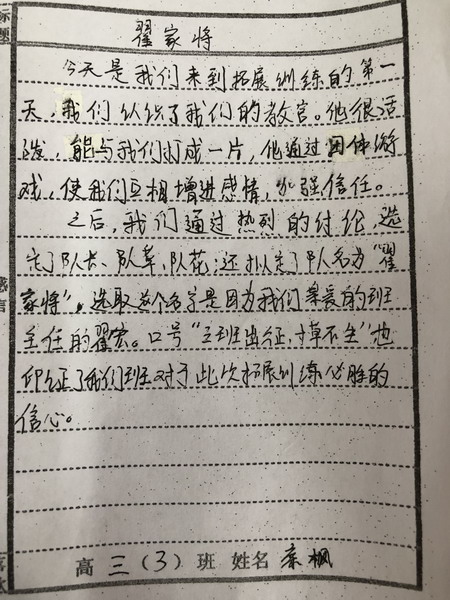 标题
翟家将
今天是我们来到拓展训练的第一
天，我们认识了我们的教官。他很活
泼，能与我们打成一片，他通过团体游
戏，使我们互相增进感情，加强信任。
之后，我们通过热烈的讨论，选
定了队长、队草、队花；还拟定了队名为“翟
家将”。选取这个名字是因为我们亲爱的班
主任的翟宏。口号“三班出征，寸草不生”也
印证了我们班对于此次拓展训练必胜的
信心。
感言
高三（3）班 姓名 秦枫